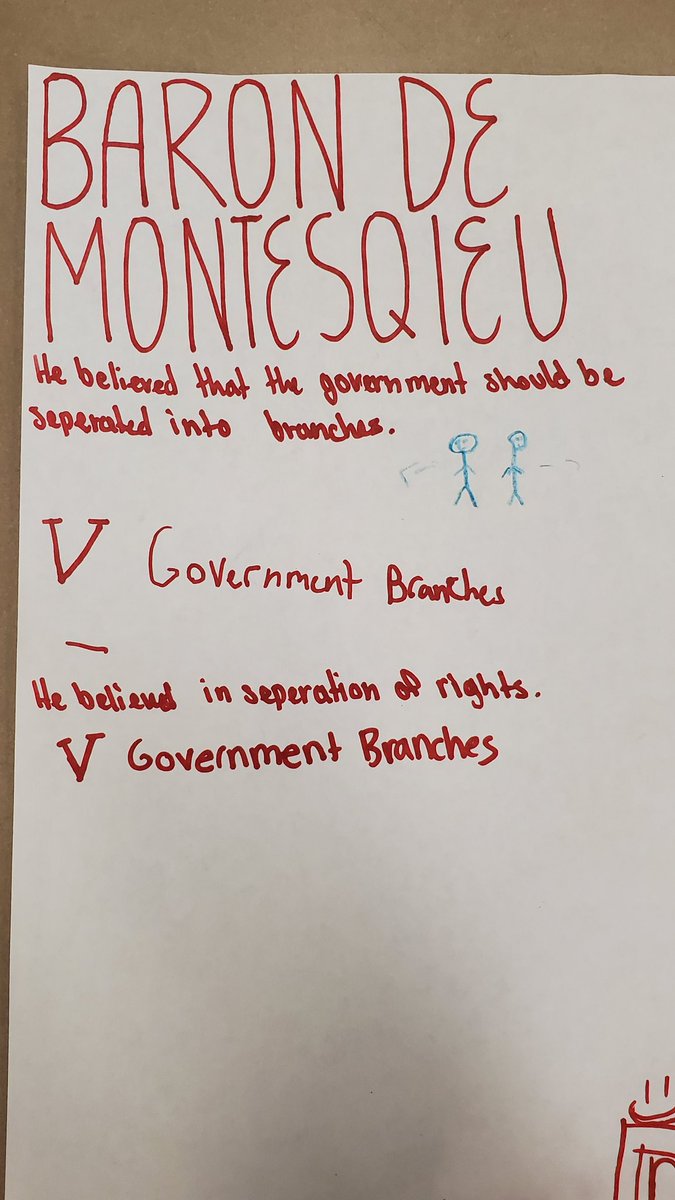 BARON DE
MONTESQIEU
He believed that the government should be
seperated into branches.
V Government Branches
He believed in seperation of rights.
V Government Branches